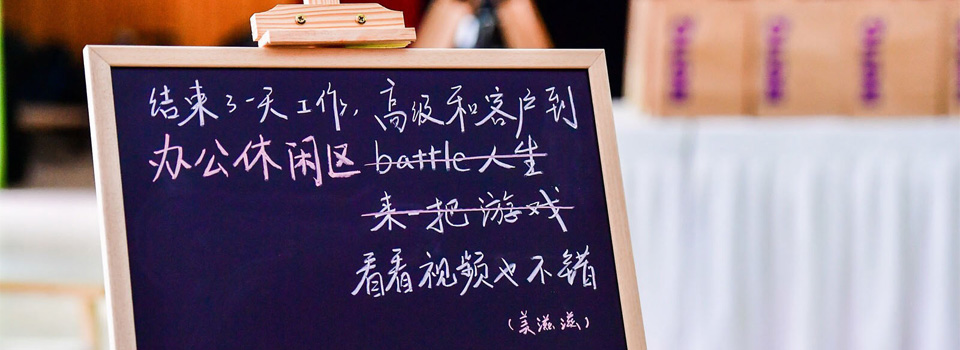 结来了一天工作,高级和客户到
办公休闲区 battle人生
来一把游戏
看看视频也不错
(美滋滋)